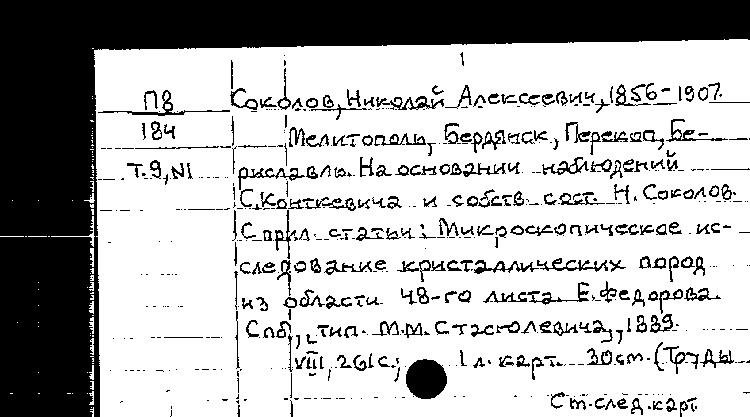 П8
184
Т.9,N1
Соколов, Николай Алексеевич, 1856-1907.
Мелитополь, Бердянск, Перекоп, Бе-
риславль. На основании наблюдений
С.Конткевича и собств. сост. Н. Соколов.
С прил. статьи: Микроскопическое ис-
следование кристаллических пород
из области 48-го листа. Е.Федорова.
Спб., тип. М.М.Стасюлевича, 1889.
VIII, 261с.; 1 л. карт. 30см. (Труды
См.след.карт